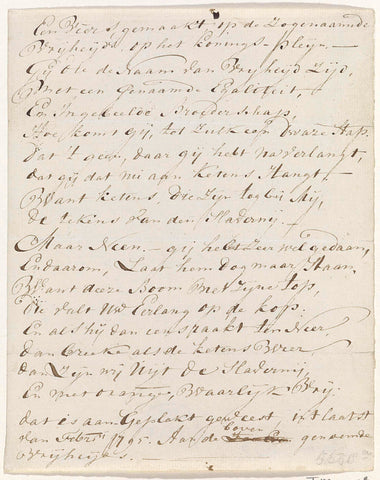 Een Vers gemaakt op de Zogenaamde
Vrijheijd, op het Konings-pleijn. —
Gij die de Naam van Vrijheijd Zijd,
Met een Genaamde Egaliteit,
En Ingebeelde Broederschap,
Hoe komt gij, tot zulk een Dwaze Stap.
Dat 't geen, daar gij hebt na verlangt,
dat gij dat nu aan ketens Hangt. —
Want ketens, die Zijn tog bij Mij,
De tekens van den Slavernij. —
Maar Neen. — gij hebt zeer wel gedaan,
En daarom, Laat hem dog maar Staan,
Want deeze Boom met Zijne top,
Die valt Uw Eerlang op de kop.
En als hij dan eens raakt ter Neer,
Dan breeke als de ketens Weer,
dan Zijn wij Uijt de Slavernij,
En met oranje, Waarlijk Vrij.
dat is aan Geplakt geweest int laatst
van Febr: 1795. Aan de boven genoemde
Vrijheijds. —